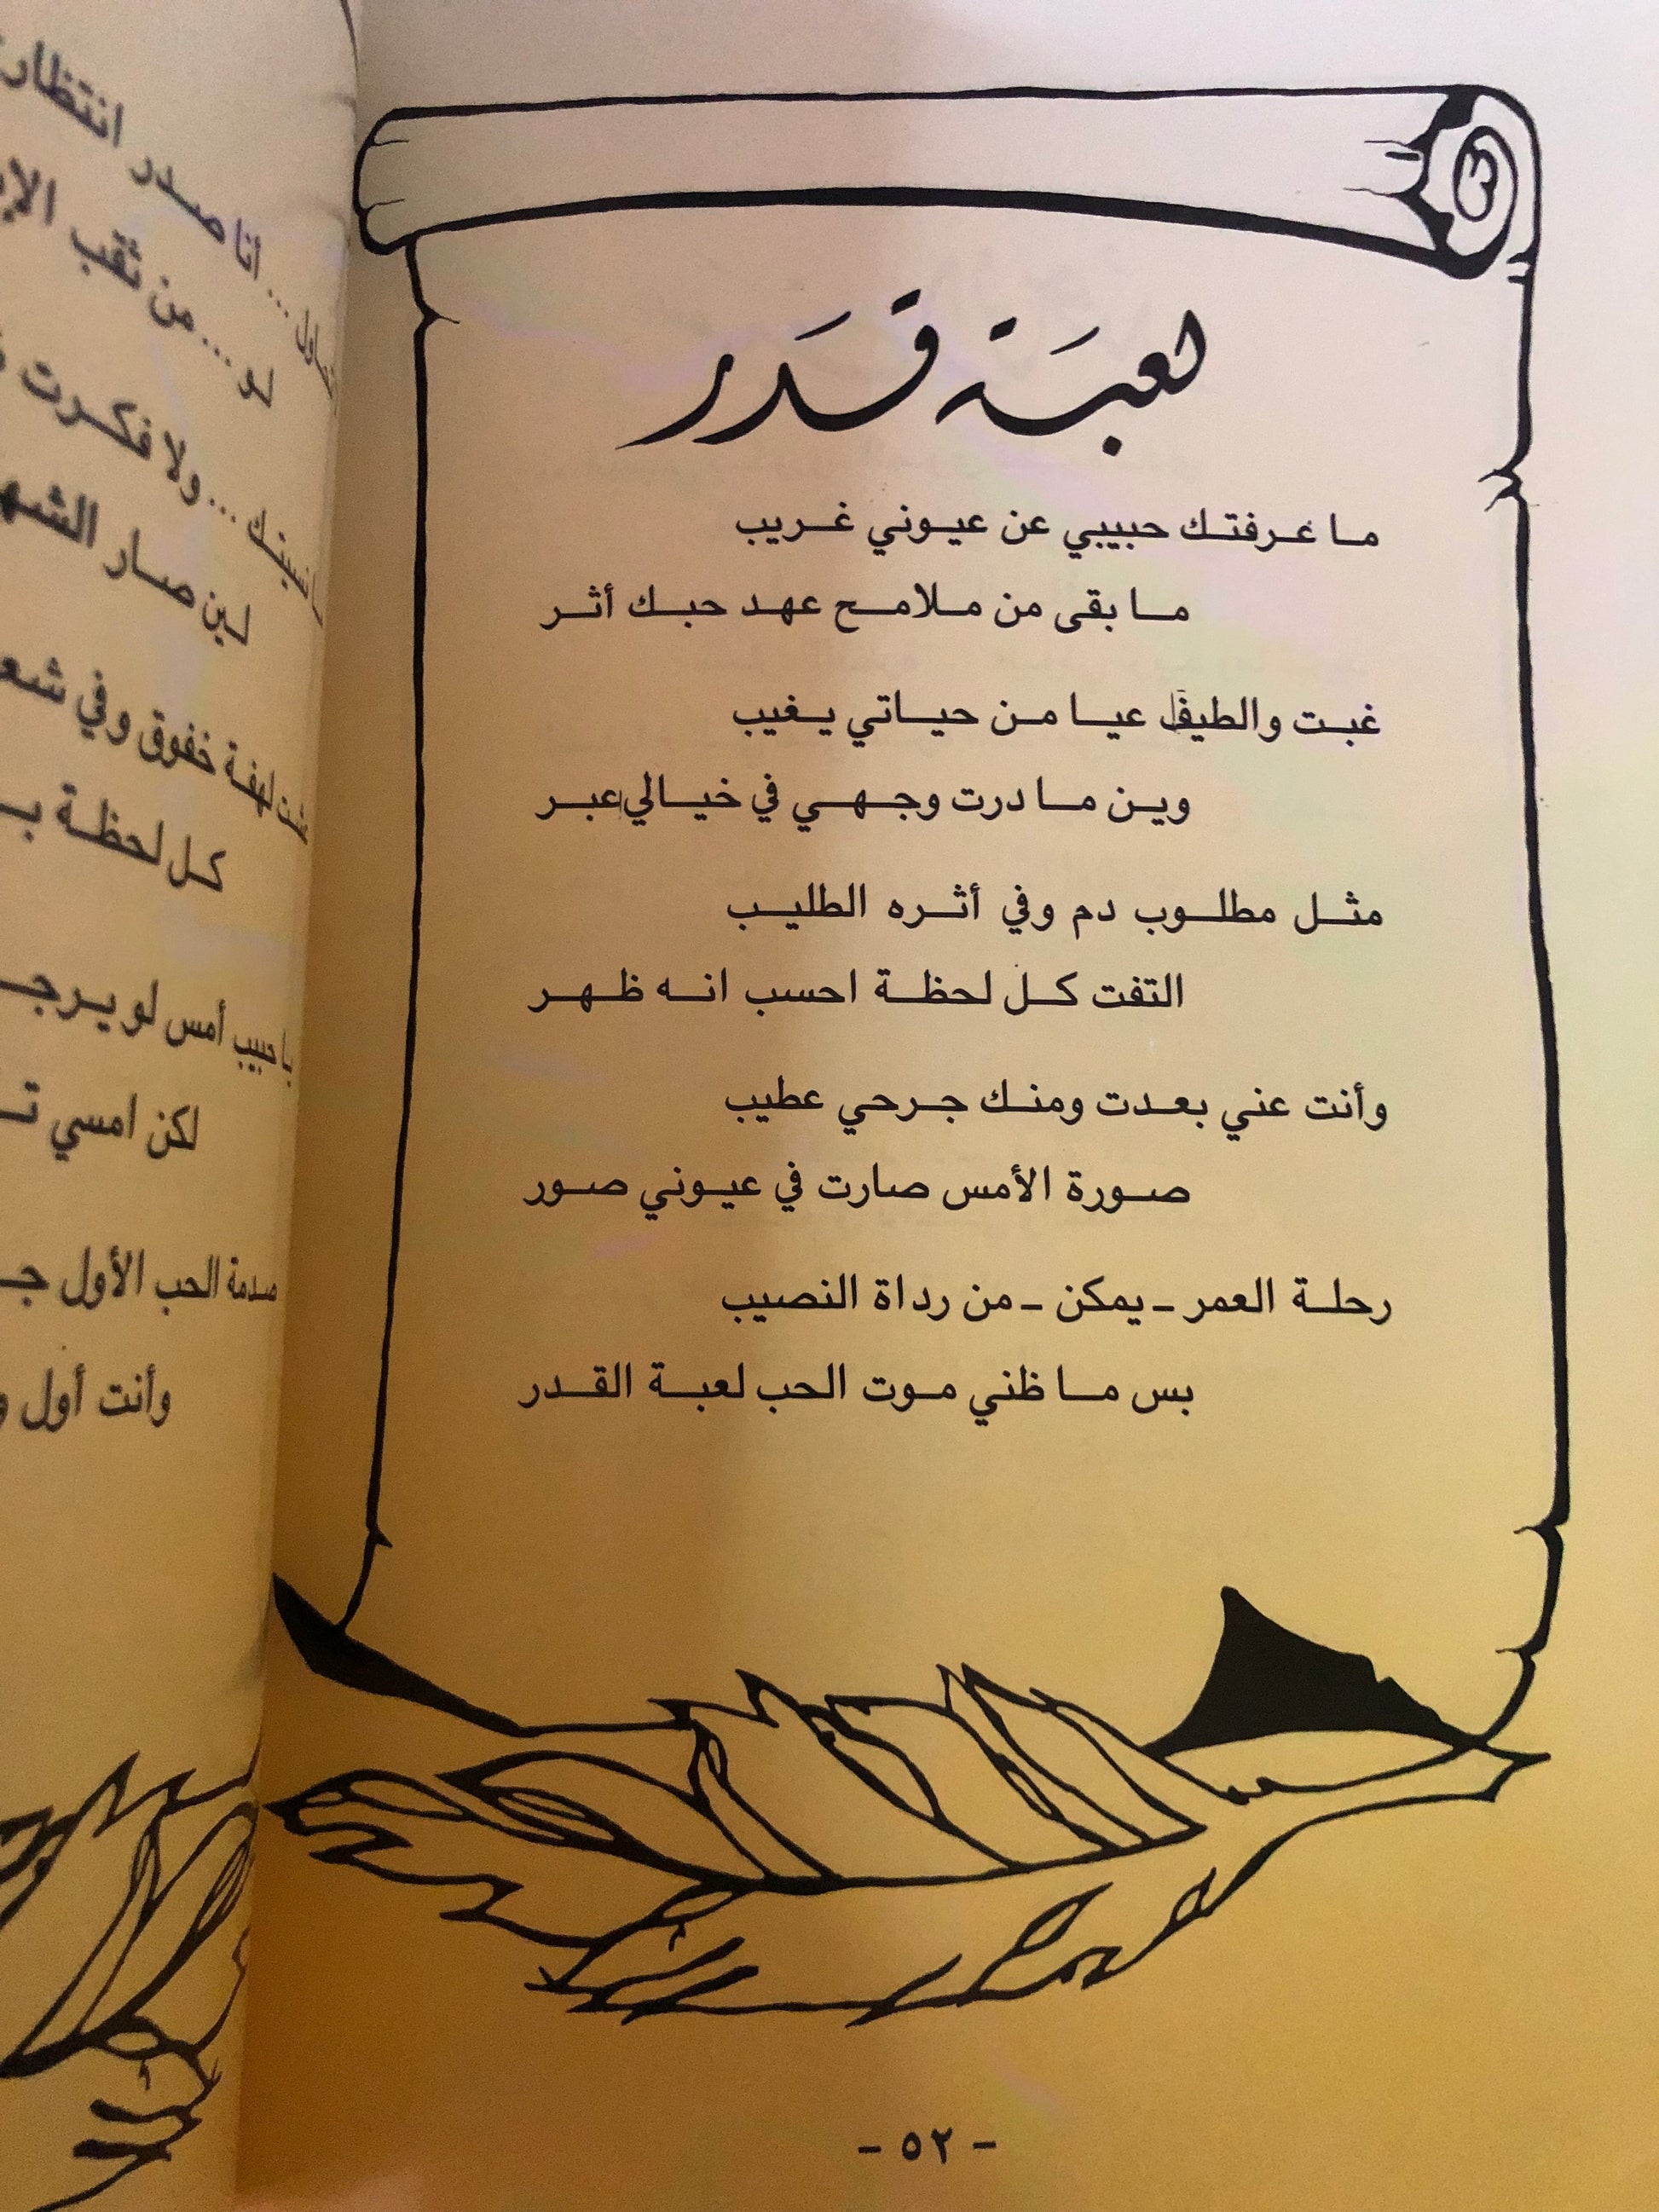 لعبة قدر
ما عرفتك حبيبي عن عيوني غريب
ما بقى من ملامح عهد حبك أثر
غبت والطيف عيا من حياتي يغيب
وين ما درت وجهي في خيالي عبر
مثل مطلوب دم وفي أثره الطليب
التفت كل لحظة احسب انه ظهر
وأنت عني بعدت ومنك جرحي عطيب
صورة الأمس صارت في عيوني صور
رحلة العمر - يمكن - من رداة النصيب
بس ما ظني موت الحب لعبة القدر
- ٥٢ -
أنا صدر انتظار
لو ... من ثقب
ولا فكرت
لين صار
لهفة خفوق وفي
كل لحظة
أمس لو يرجـ
لكن امسي
صدمة الحب الأول
وأنت أول